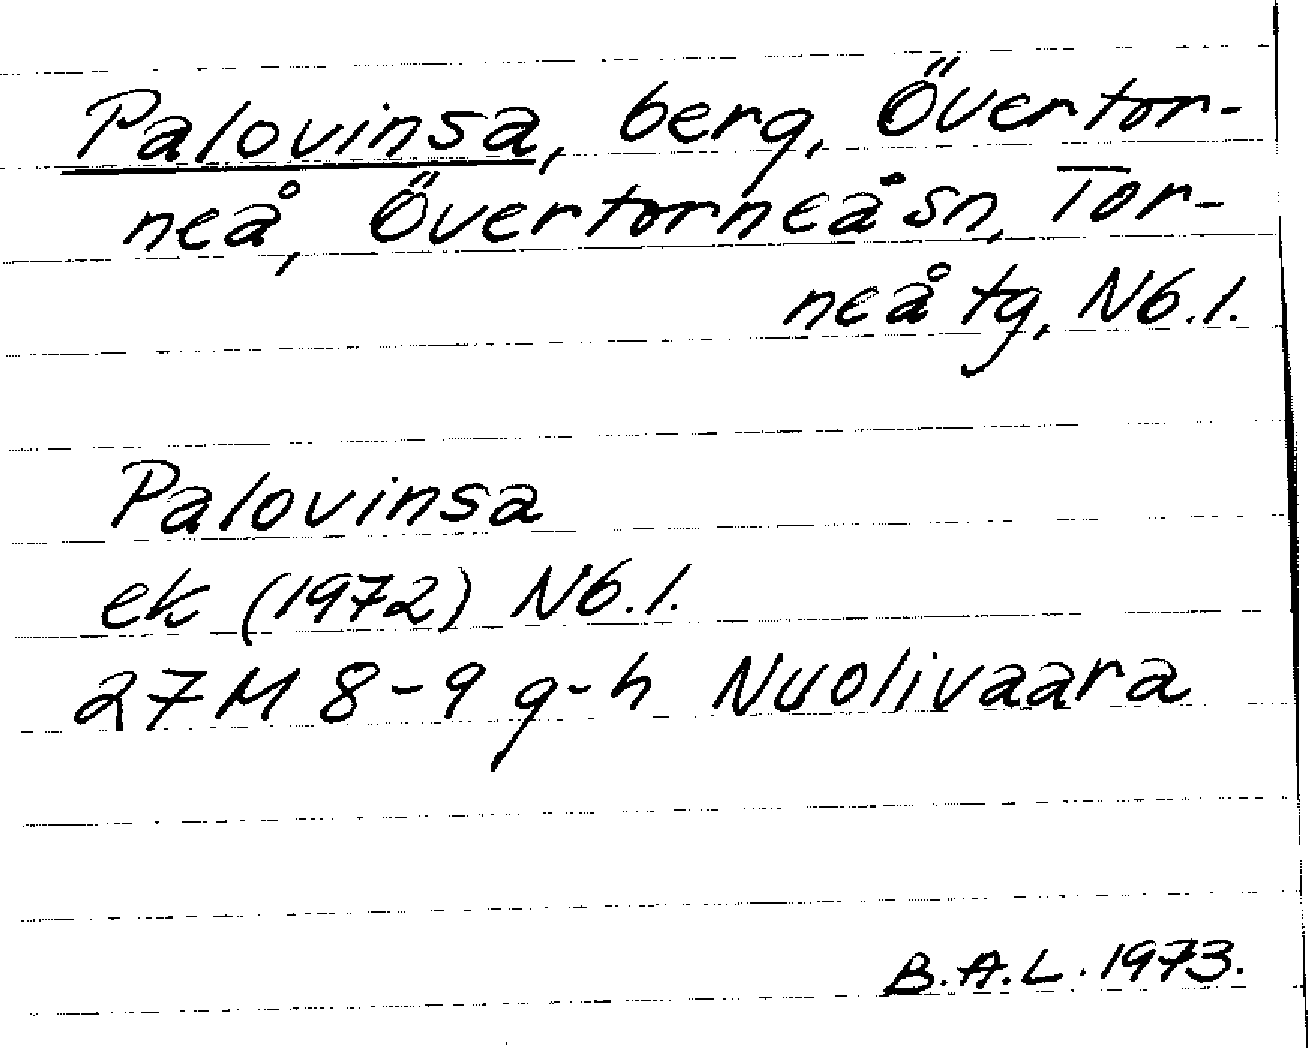 Palovinsa, berg, Övertor-
neå, Övertorneå sn, Tor-
neå tg, Nb.l.
Palovinsa
ek (1972) Nb.l.
27M 8-9 g-h Nuolivaara
B.A.L. 1973.